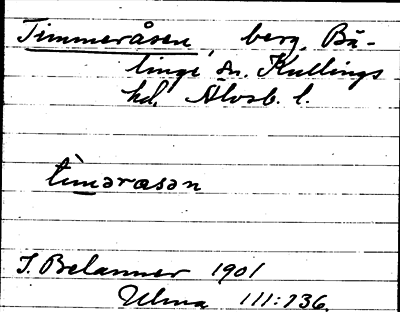 Timmeråsen, berg, Bä-
linge sn. Kullings
hd. Älvsb. l.
tìməråsən
J. Belanner 1901
Ulma 111:736.